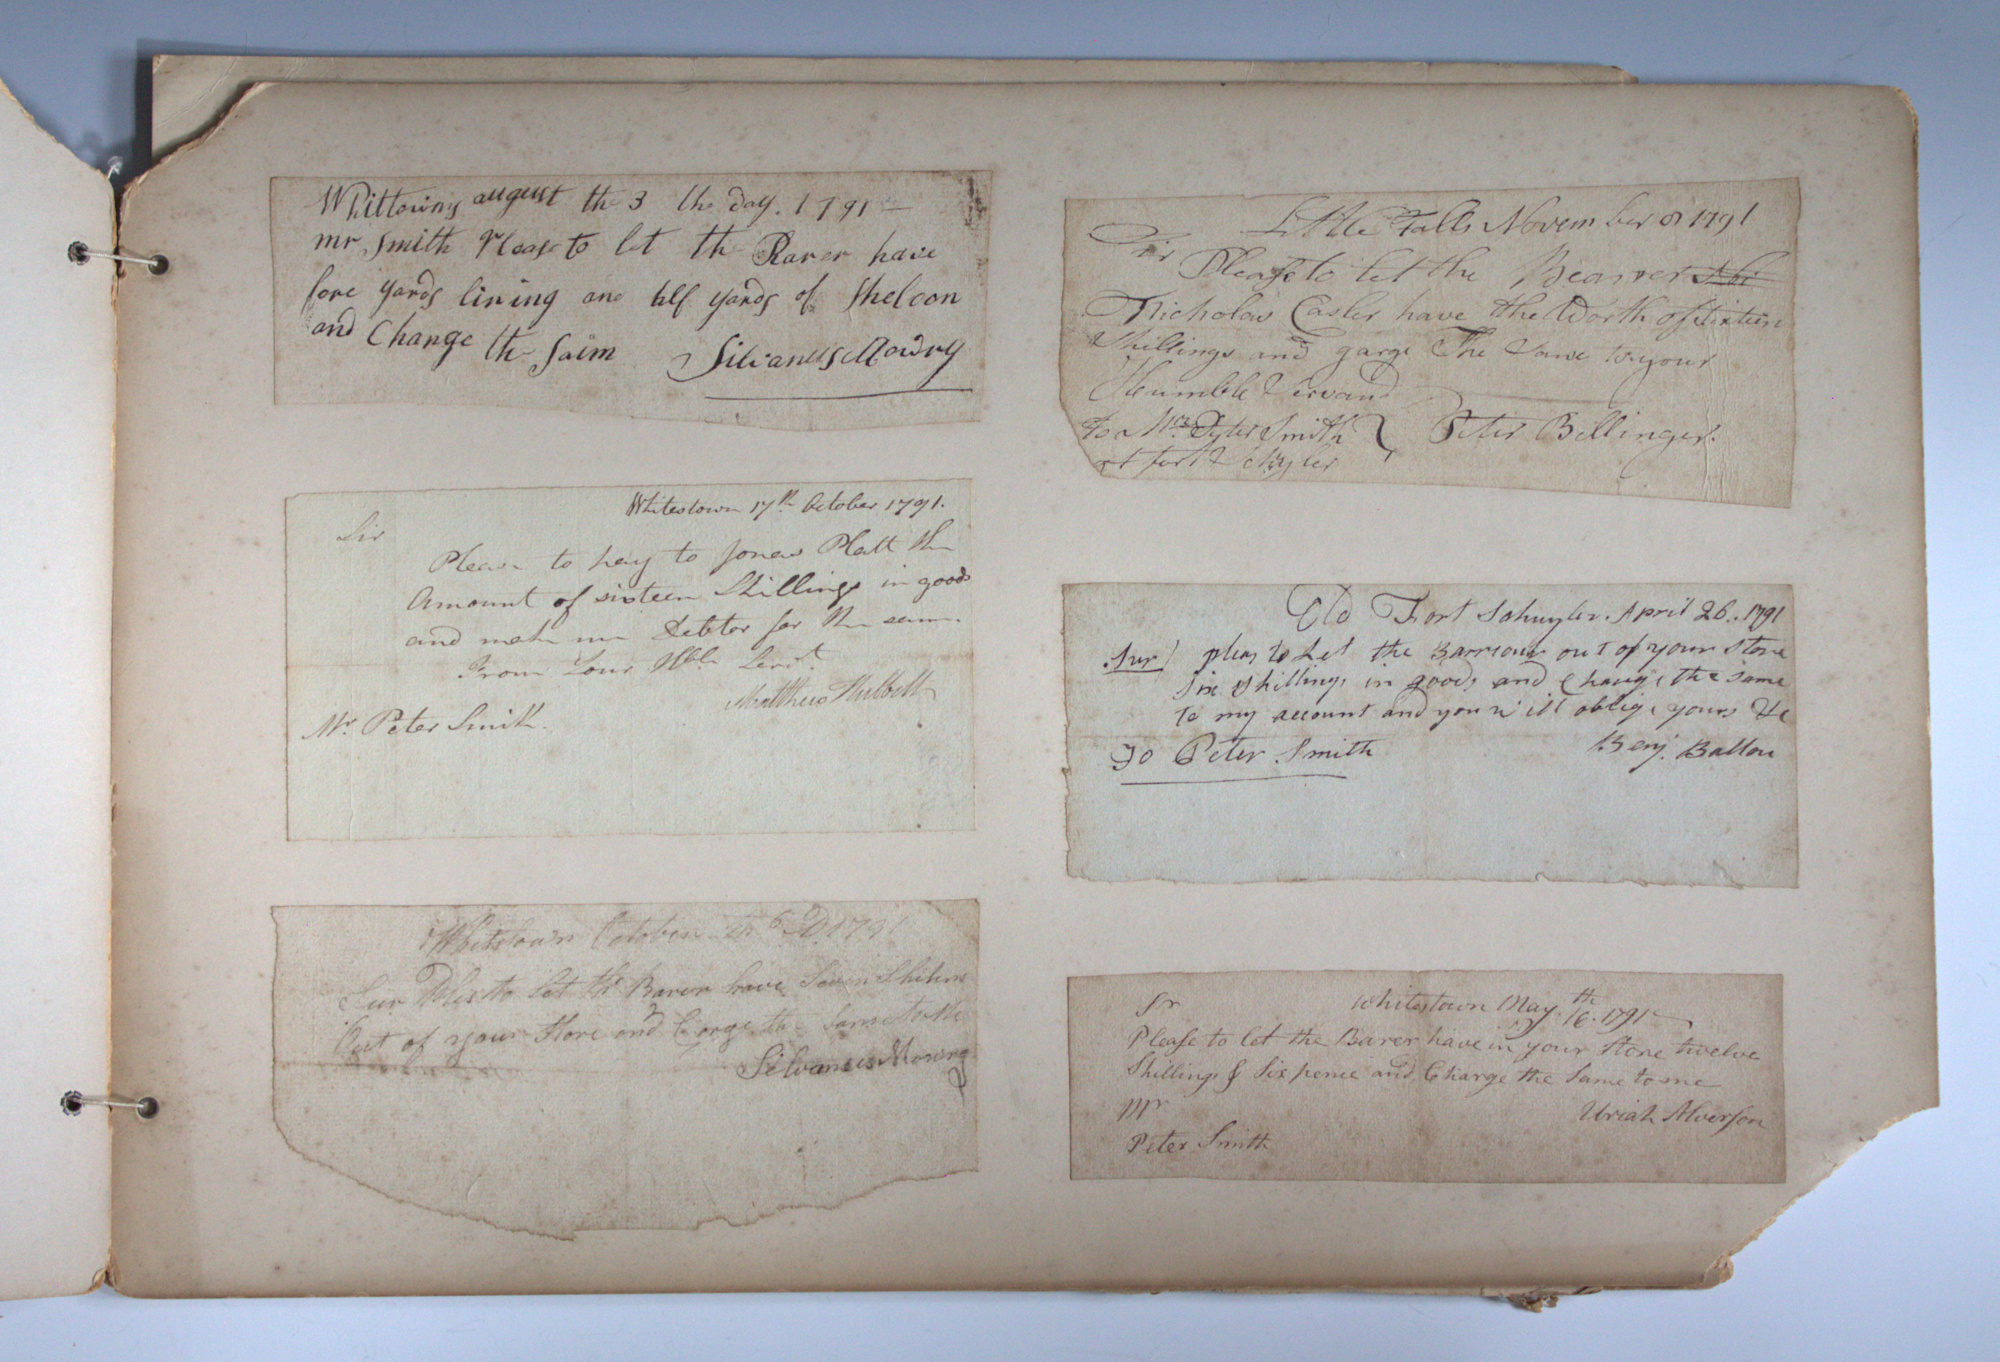 Whittowns august the 3 the day. 1791 —
mr Smith Please to let the Barer have
fore yards lining and half yards of Sheloon
and Change the Saim Silvanus Mowry
Whitestown 17th October 1791.
Sir
Please to pay to Jonas Platt the
Amount of sixteen Shillings in goods
and make me Debtor for the same.
From Your Hble Servt
Matthew Hubbell
Mr Peter Smith.
Whitstown October th 6 D 1791
Sur Ples to let the Barer have Seven Shilens
Out of your Store and Carge the Same to Me
Silvanus Mowry
Little Falls November 1791
Sir
Please to let the Bearer
Nicholas Casler have the Worth of Sixteen
Shillings and garge The Same to your
Heumble Servand
To Mr Peter Smith Peter Bellinger.
at fort Schyler
Old Fort Schuyler. April 26. 1791
Sur pleas to Let the Barrour out of your Store
Six Shillings in goods and Charge the same
to my account and you will oblige yours &c
To Peter Smith Benj. Ballou
Sr Whitestown May th 16. 1791
Please to let the Barer have in your Store twelve
Shillings & Six pence and Charge the Same to me
Mr Uriah Alverson
Peter Smith